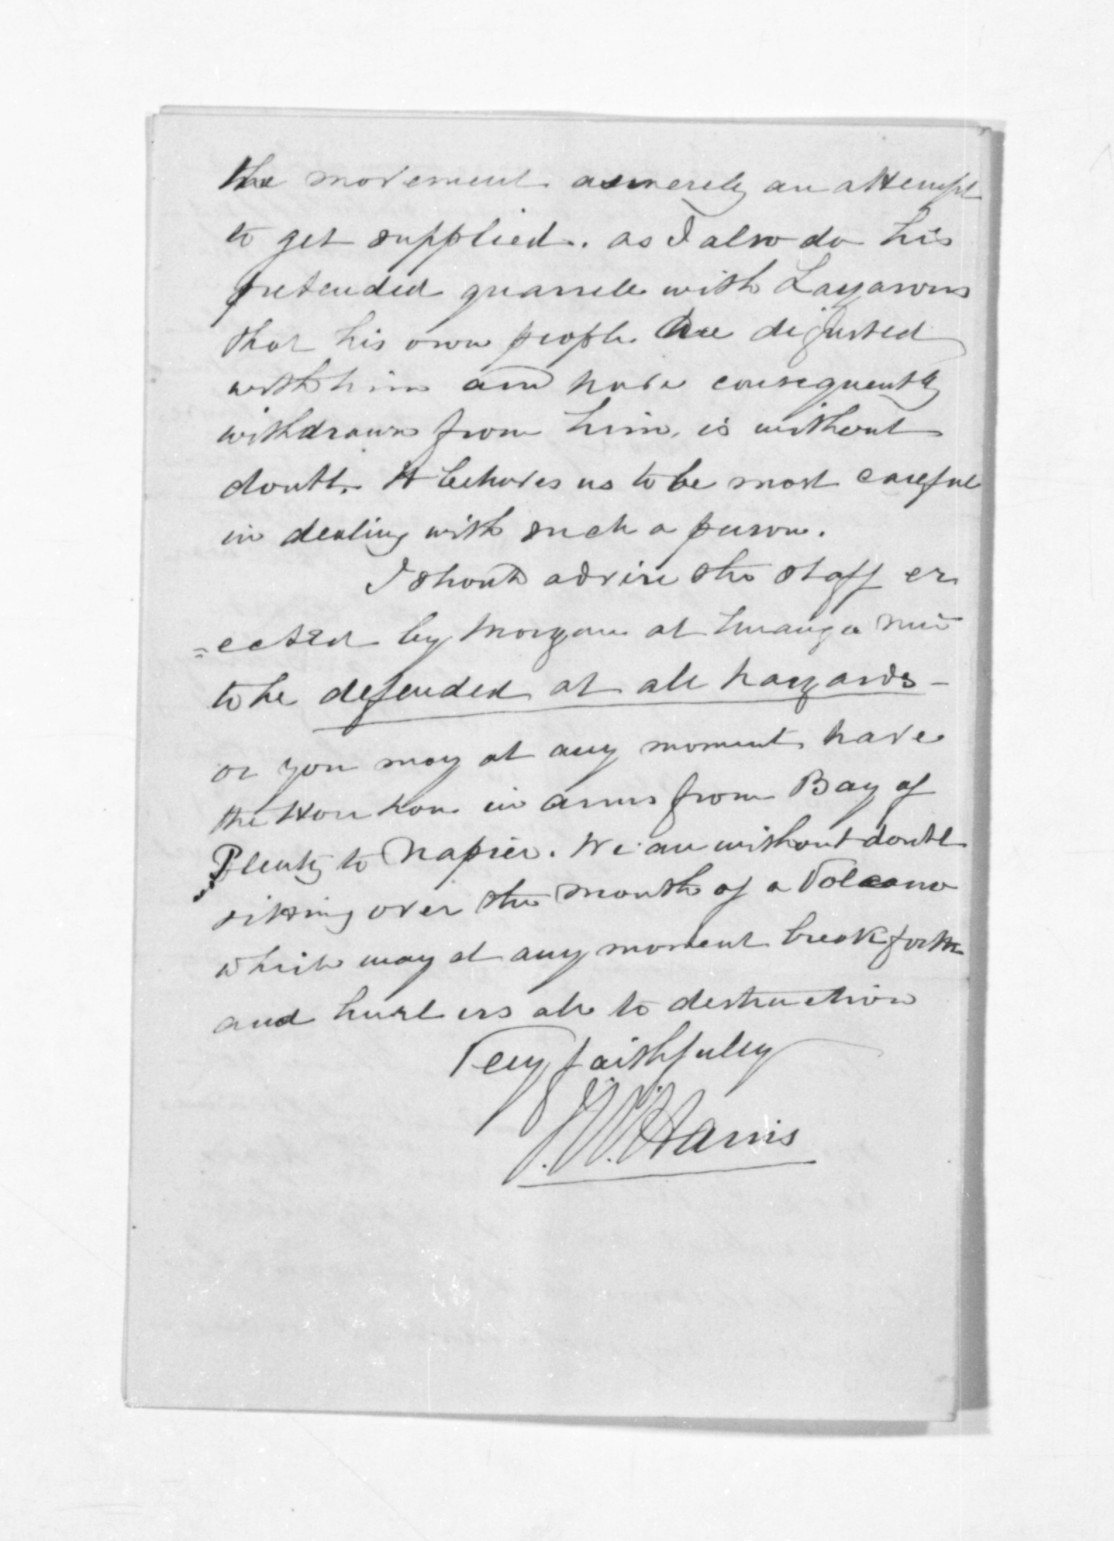 the movement as merely an attempt
to get supplied. as I also do his
pretended quarrele with Lazarous
that his own people are disgusted
with him and have consequently
withdrawn from him, is without
doubt. It behoves us to be most careful
in dealing with such a person.
I should advise the staff er
=ected by Morgan at Turanga nui
to be defended at all hazards -
or you may at any moment have
the Hou hou in arms from Bay of
Plenty to Napier. We are without doubt
sitting over the mouth of a Volcano
which may at any moment break forth
and hurl us all to destruction
Very faithfully
J. W. Harris